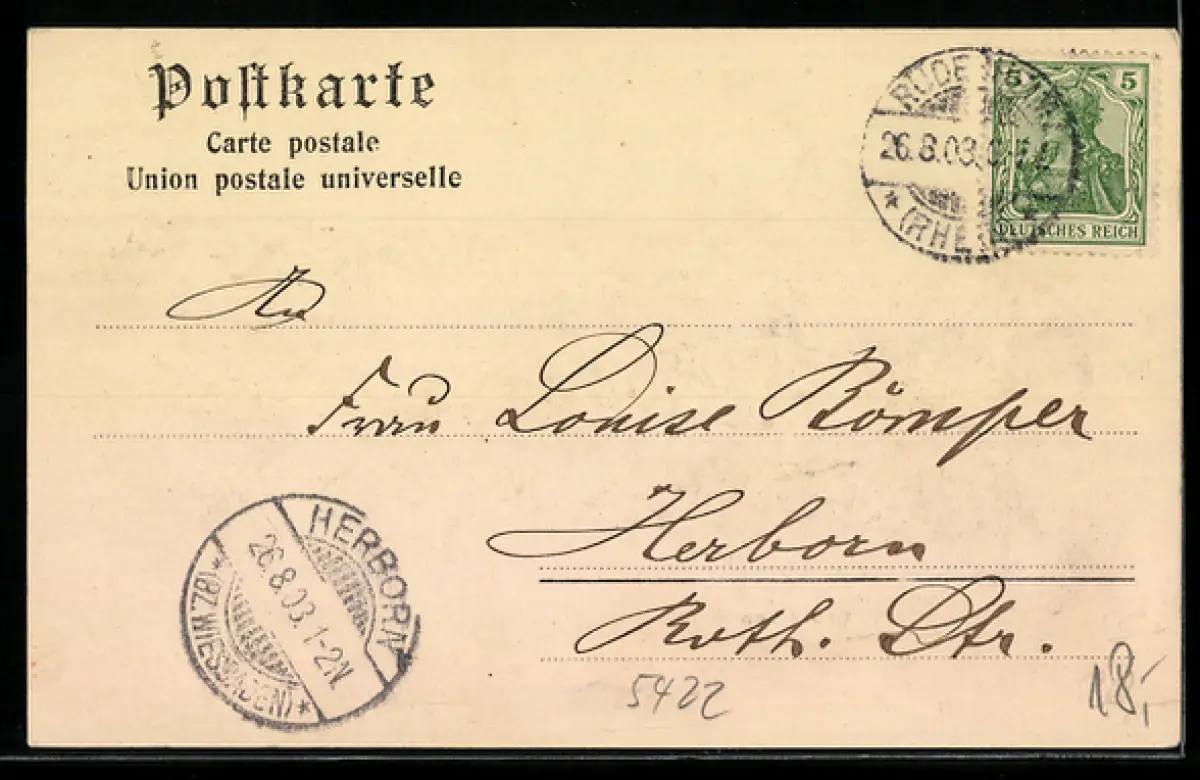 Postkarte
Carte postale
Union postale universelle
5 5
DEUTSCHES REICH
26.8.03
An
Frau Louise Bömper
Herborn
Roth. Str.
HERBORN
26.8.03. 1-2N.
(BZ. WIESBADEN)
5422
18,-